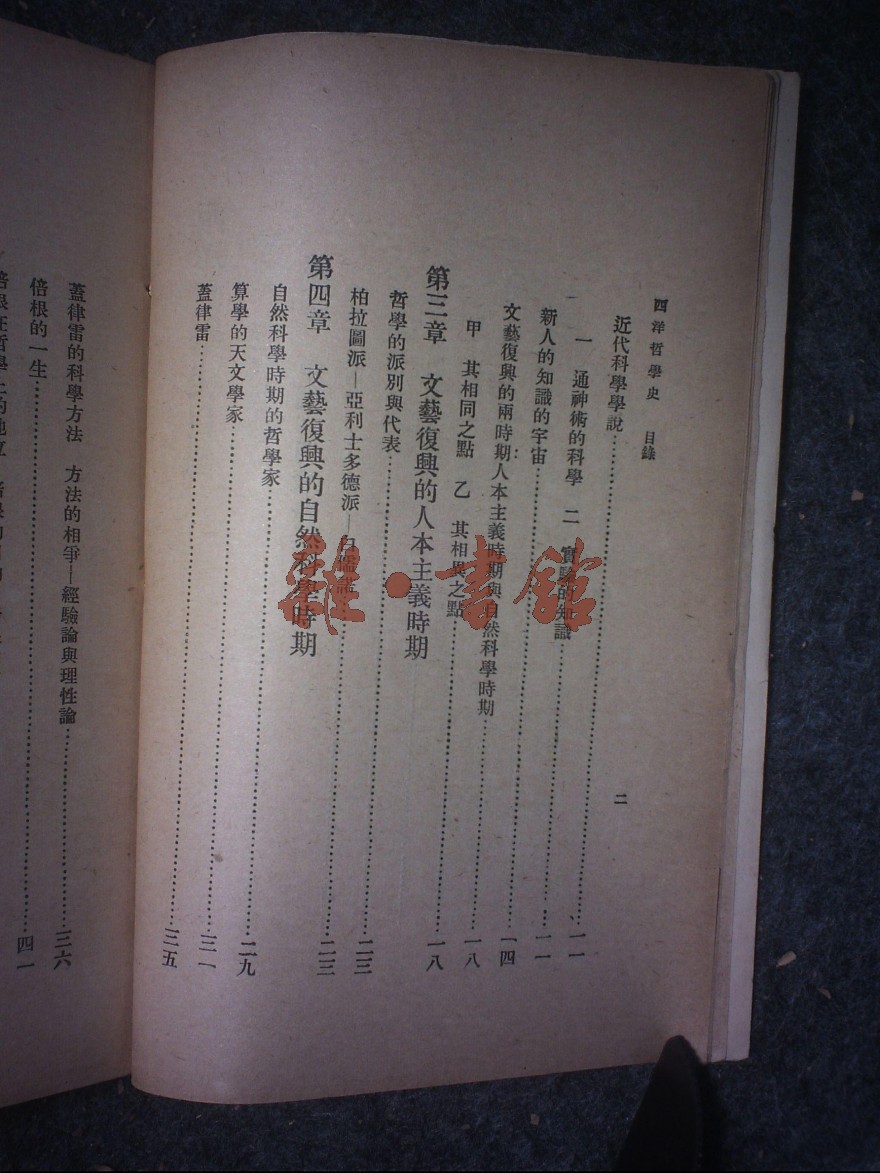 西洋哲學史 目錄
二
近代科學學說……………………一一
一 通神術的科學 二 實驗的知識……………………一一
新人的知識的宇宙……………………一四
文藝復興的兩時期人本主義時期與自然科學時期……………………一八
甲 其相同之點 乙 其相異之點……………………一八
第三章 文藝復興的人本主義時期
哲學的派別與代表……………………二三
柏拉圖派—亞利士多德派—……………………二三
第四章 文藝復興的自然科學時期
自然科學時期的哲學家……………………二九
算學的天文學家……………………三一
蓋律雷……………………三五
蓋律雷的科學方法 方法的相爭—經驗論與理性論……………………三六
倍根的一生……………………四一
倍根在哲學上的地位
雜·書館